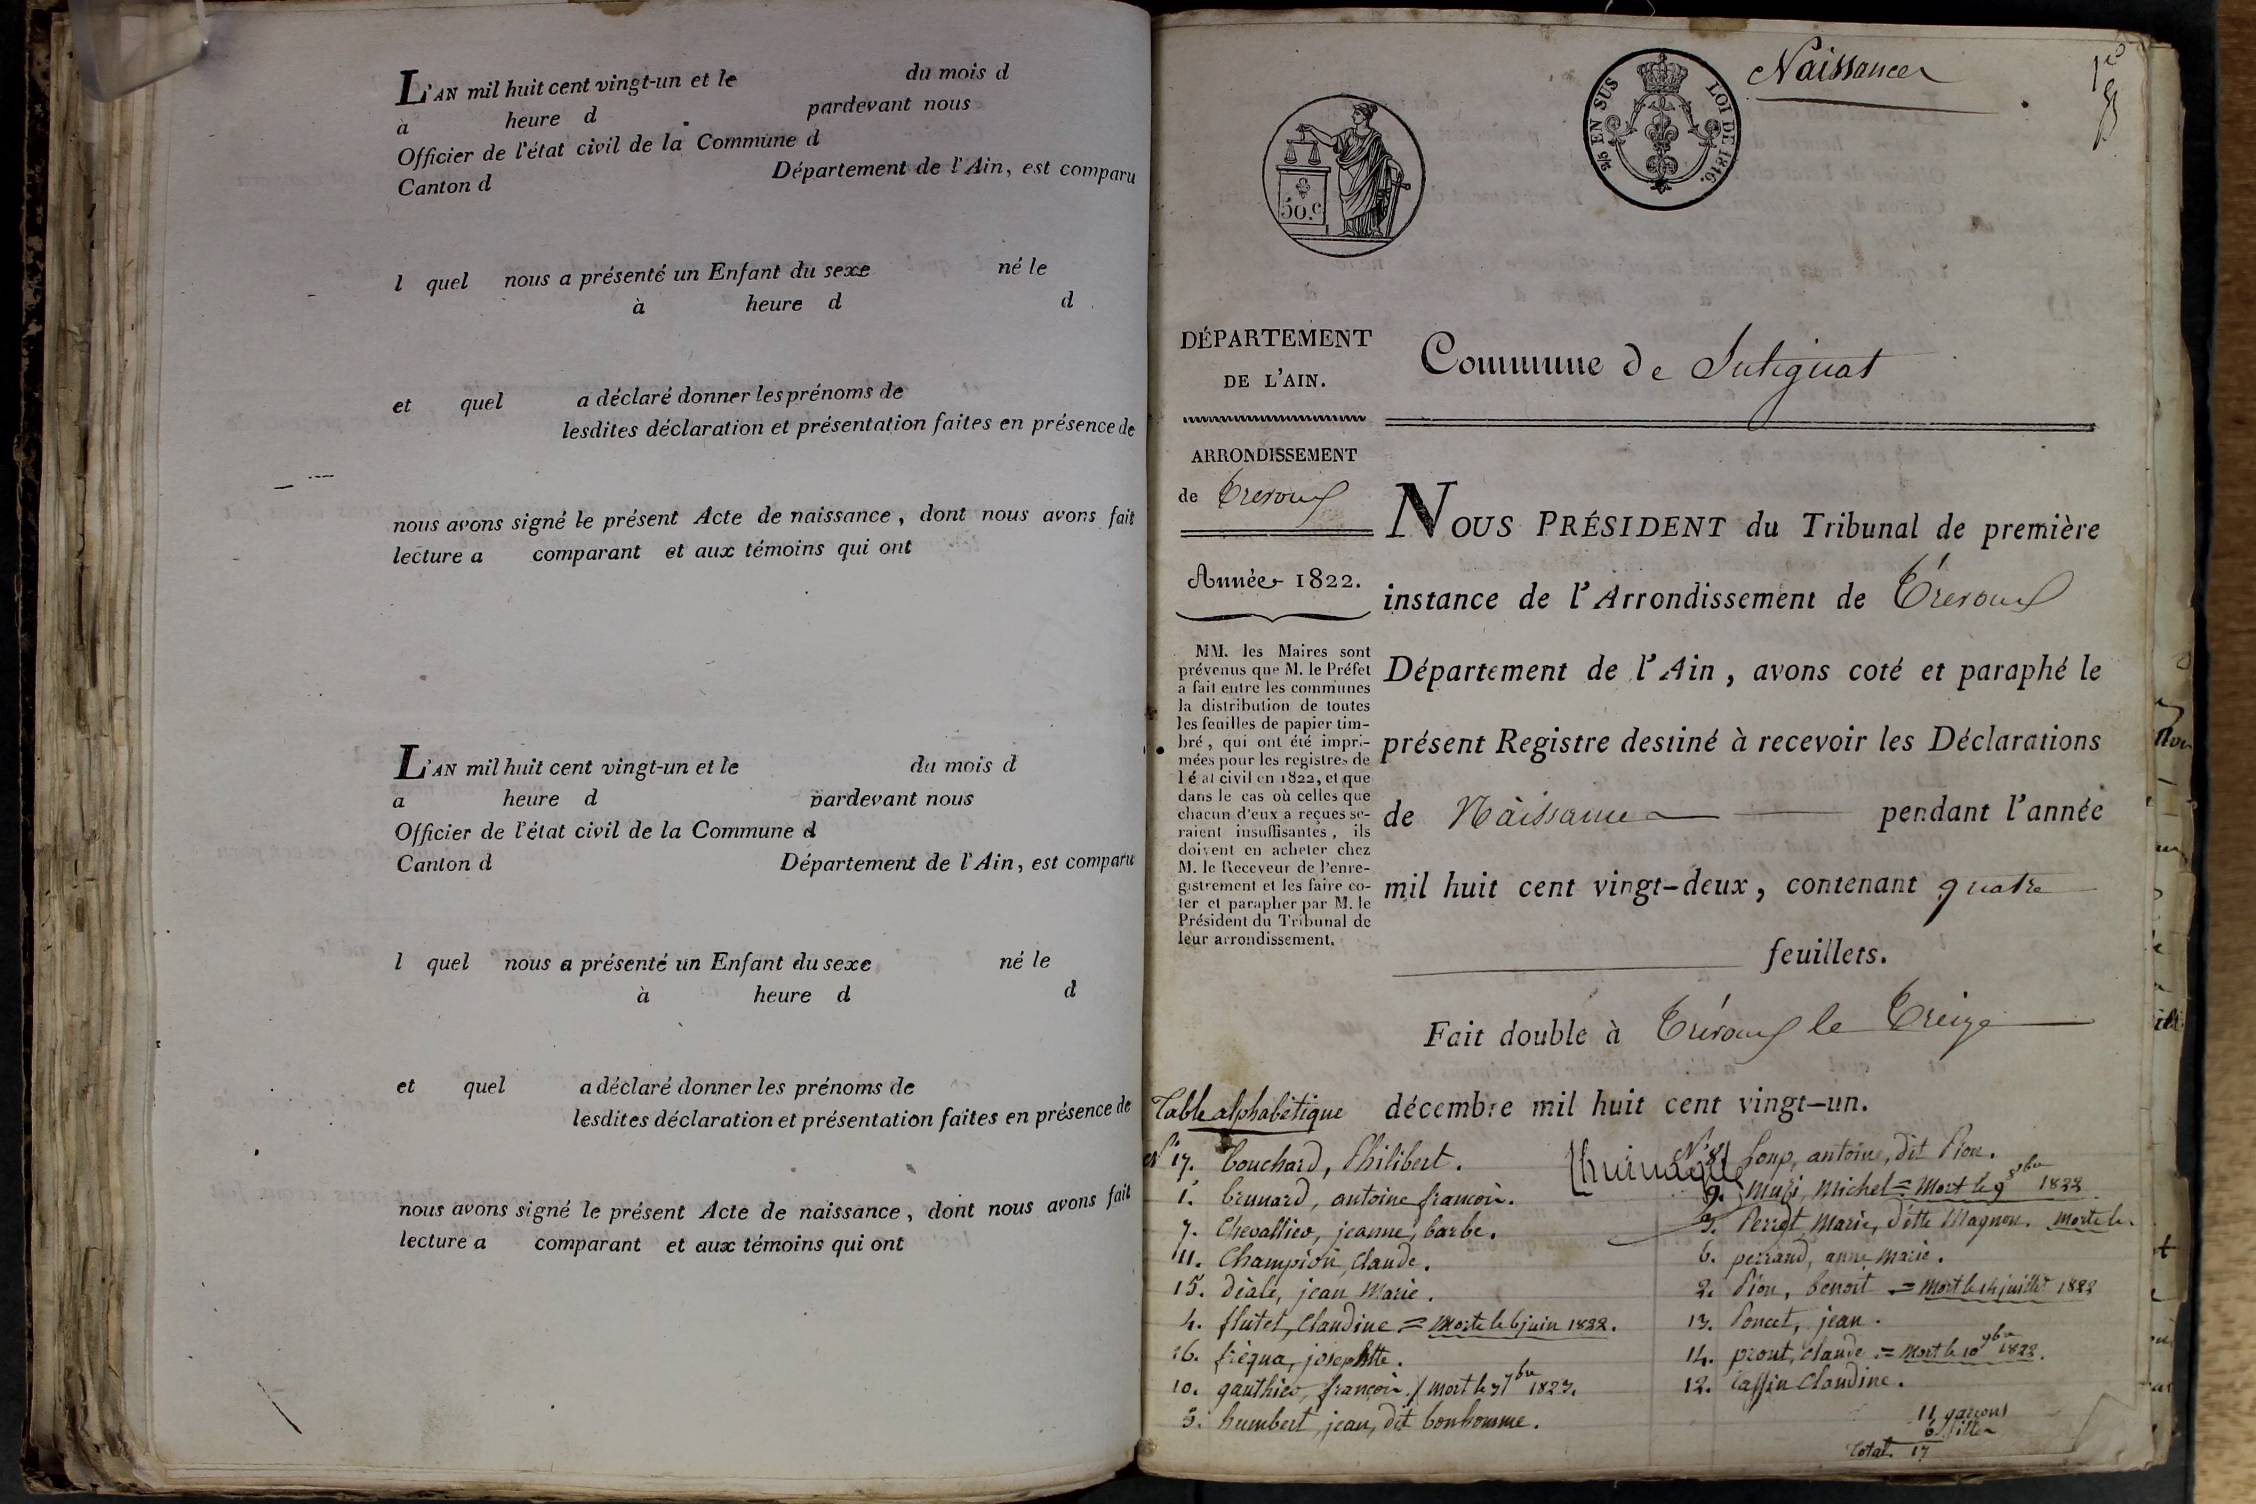 L'AN mil huit cent vingt-un et le du mois d
à heure d pardevant nous
Officier de l'état civil de la Commune d
Canton d Département de l'Ain, est comparu
l quel nous a présenté un Enfant du sexe né le
à heure d d
et quel a déclaré donner les prénoms de
lesdites déclaration et présentation faites en présence de
nous avons signé le présent Acte de naissance, dont nous avons fait
lecture a comparant et aux témoins qui ont
L'AN mil huit cent vingt-un et le du mois d
a heure d pardevant nous
Officier de l'état civil de la Commune d
Canton d Département de l'Ain, est comparu
l quel nous a présenté un Enfant du sexe né le
à heure d d
et quel a déclaré donner les prénoms de
lesdites déclaration et présentation faites en présence de
nous avons signé le présent Acte de naissance, dont nous avons fait
lecture a comparant et aux témoins qui ont
Naissances
50.c
EN SUS LOI DE 1816.
DÉPARTEMENT
DE L'AIN.
Commune de Sulignat
ARRONDISSEMENT
de Trévoux
Année 1822.
MM. les Maires sont
prévenus que M. le Préfet
a fait entre les communes
la distribution de toutes
les feuilles de papier tim-
bré, qui ont été impri-
mées pour les registres de
l'état civil en 1822, et que
dans le cas où celles que
chacun d'eux a reçues se-
raient insuffisantes, ils
doivent en acheter chez
M. le Receveur de l'enre-
gistrement et les faire co-
ter et parapher par M. le
Président du Tribunal de
leur arrondissement.
NOUS PRÉSIDENT du Tribunal de première
instance de l'Arrondissement de Trévoux
Département de l'Ain, avons coté et paraphé le
présent Registre destiné à recevoir les Déclarations
de Naissances pendant l'année
mil huit cent vingt-deux, contenant quatre
feuillets.
Fait double à Trévoux le Treize
décembre mil huit cent vingt-un.
Table alphabétique
N° 17. bouchard, Philibert.
1. brunard, antoine françois.
7. Chevallier, jeanne, barbe.
11. Champion, Claude.
15. diale, jean Marie.
4. flutet, Claudine = Morte le 6 juin 1822.
16. fréqua, josephtte.
10. gauthier, françois / mort le 3 7bre 1823.
5. humbert, jean, dit bonhomme.
N° 8. Loup, antoine, dit Pion.
9. Muzi, Michel = Mort le 9 8bre 1822
3. Perrot, Marie, ditte Magnon. Morte le.
6. perrand, anne Marie.
2. Pion, benoit = Mort le 14 juillet 1822
13. Poncet, jean.
14. prout, Claude = Mort le 10 9bre 1822.
12. Taffin Claudine.
11 garçons
6 filles
Total 17